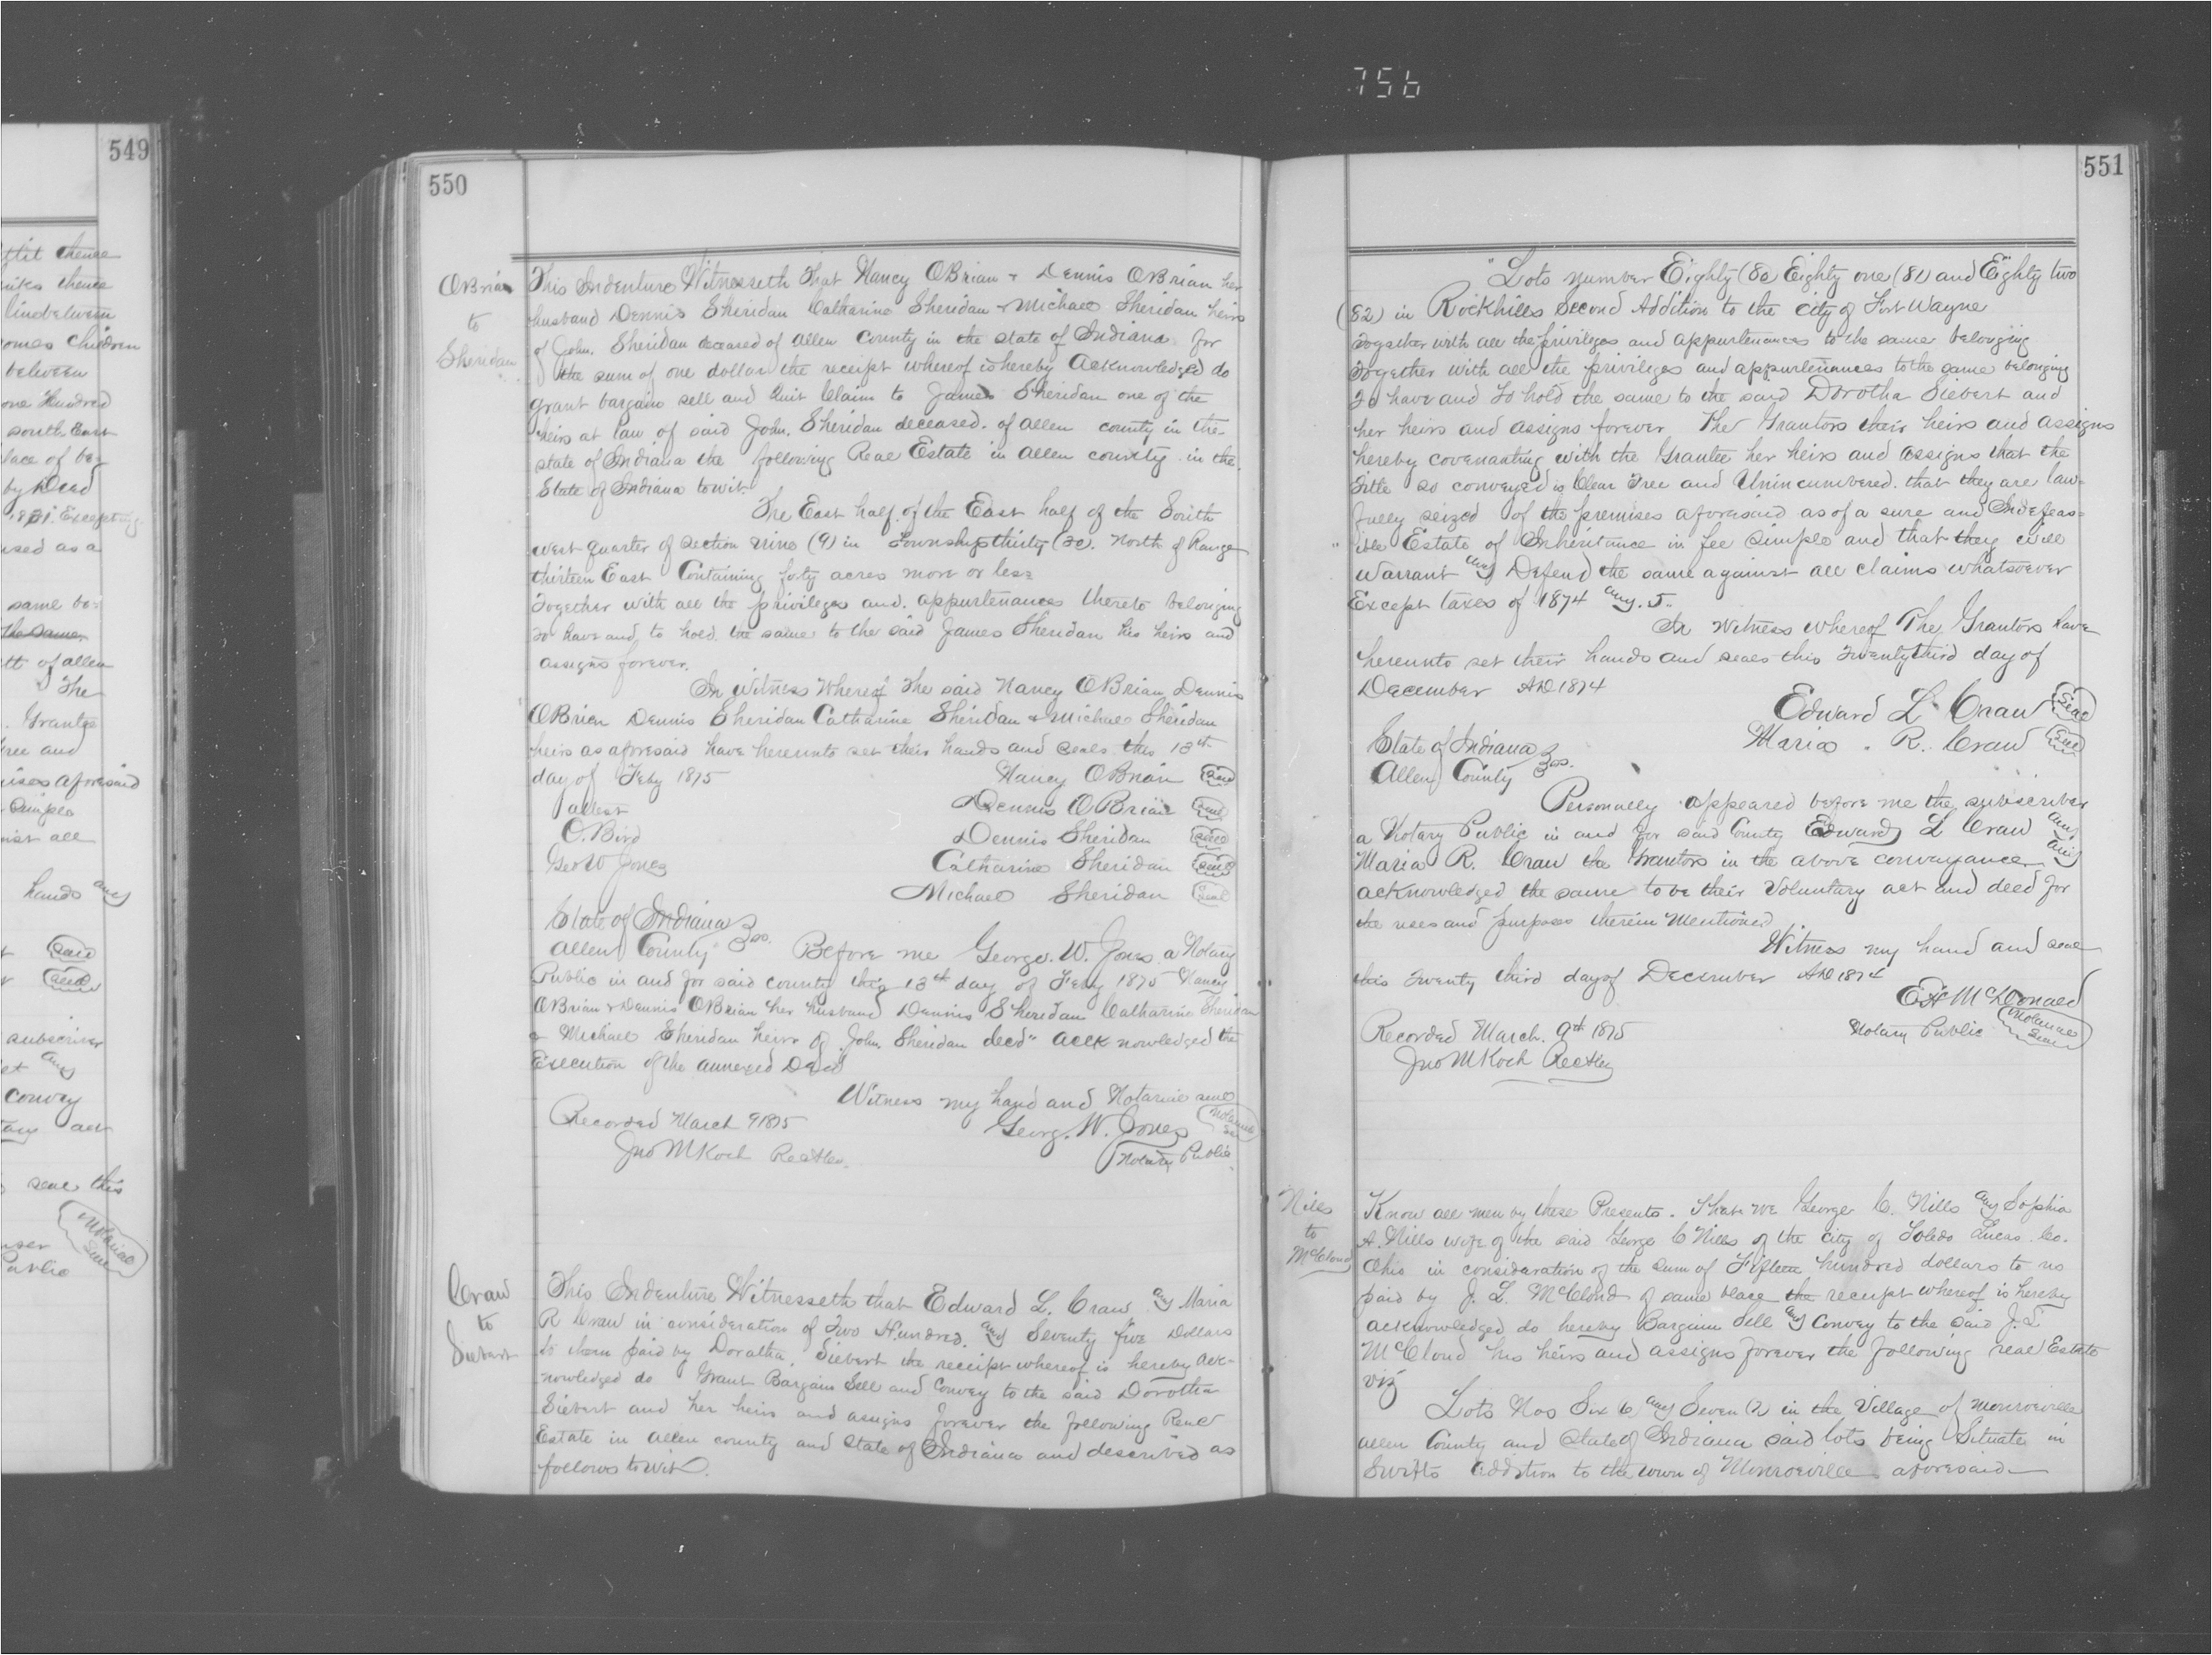 756
549
ttit thence
thence
line between
omes Children
between
one Hundred
south East
lace of be-
by Deed
1871. Excepting
used as a
same be-
the same
tt of allen
The
Grantee
ree and
ises aforesaid
Simple
nst all
hands and
Seal
Seal
subscriber
and
convey
act
seal this
Notarial
Seal
Public
550
OBrian
to
Sheridan
This Indenture Witnesseth That Nancy OBrian + Dennis OBrian her
husband Dennis Sheridan Catharine Sheridan + Michael Sheridan heirs
of John. Sheridan deceased of allen County in the state of Indiana for
the sum of one dollar the receipt whereof is hereby Acknowledged do
grant bargain sell and Quit Claim to James Sheridan one of the
heirs at law of said John. Sheridan deceased. of allen county in the
state of Indiana the following Real Estate in allen county in the
State of Indiana towit.
The East half of the East half of the South
west quarter of section nine (9) in Township thirty (30). North of Range
thirteen East Containing forty acres more or less
Together with all the privileges and appurtenances thereto belonging
to have and to hold the same to the said James Sheridan his heirs and
assigns forever.
In Witness Whereof The said Nancy OBrian Dennis
OBrien Dennis Sheridan Catharine Sheridan + Michael Sheridan
heirs as aforesaid have hereunto set their hands and seals this 13th
day of Feby 1875 Nancy OBrian Seal
attest Dennis OBrian Seal
O. Bird Dennis Sheridan Seal
Geo W Jones Catharine Sheridan Seal
Michael Sheridan Seal
State of Indiana
Allen County ss. Before me George. W. Jones a Notary
Public in and for said county this 13th day of Feby 1875 Nancy
OBrian + Dennis OBrian her husband Dennis Sheridan Catharine Sheridan
+ Michael Sheridan heirs of John. Sheridan decd" acknowledged the
Execution of the annexed Deed
Witness my hand and Notarial seal
Recorded March 9 1875 Georg. W. Jones Notarial Seal
Jno M Koch Rec Notary Public
Craw
to
Siebert
This Indenture Witnesseth that Edward L. Craw and Maria
R Craw in consideration of Two Hundred. and Seventy five Dollars
to them paid by Doratha. Siebert the receipt whereof is hereby ack-
nowledged do Grant Bargain Sell and Convey to the said Dorotha
Siebert and her heirs and assigns forever the following Real
Estate in allen county and State of Indiana and described as
follows towit.
551
Lots number Eighty (80 Eighty one (81) and Eighty two
(82) in Rockhills Second Addition to the city of Fort Wayne
Together with all the privileges and appurtenances to the same belonging
Together with all the privileges and appurtenances to the same belonging
To have and to hold the same to the said Dorotha Siebert and
her heirs and assigns forever The Grantors their heirs and assigns
hereby covenanting with the Grantee her heirs and assigns that the
Title so conveyed is Clear Free and Unincumbered. that they are law-
fully seized of the premises aforesaid as of a sure and Indefeas-
ible Estate of Inheritance in fee Simple and that they will
Warrant and Defend the same against all claims whatsoever
Except taxes of 1874 and. 5.
In Witness whereof The Grantors have
hereunto set their hands and seals this Twenty third day of
December AD 1874
Edward L Craw Seal
State of Indiana Maria. R. Craw Seal
Allen County ss.
Personally appeared before me the subscriber
a Notary Public in and for said County Edward L Craw and
Maria R. Craw the Grantors in the above conveyance and
acknowledged the same to be their Voluntary act and deed for
the uses and purposes therein mentioned
Witness my hand and seal
this Twenty third day of December AD 1874
E H McDonald
Recorded March. 9th 1875 Notary Public Notarial Seal
Jno M Koch Rec
Nills
to
McCloud
Know all men by these Presents. That we George C. Nills and Sophia
A. Nills wife of the said George C Nills of the city of Toledo Lucas. Co.
Ohio in consideration of the Sum of Fifteen hundred dollars to us
paid by J. L. McCloud of same place the receipt whereof is hereby
acknowledged do hereby Bargain Sell and Convey to the said J. L
McCloud his heirs and assigns forever the following real Estate
viz
Lots Nos Six 6 and Seven (7) in the Village of monroeville
allen County and State of Indiana said lots being Situate in
Swifts addition to the town of Monroeville aforesaid